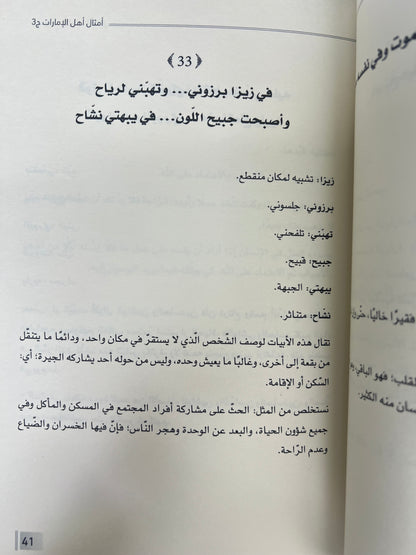 أمثال أهل الإمارات ج3
33
في زيزا برزوني... وتهبّني لرياح
وأصبحت جبيح اللّون... في يبهتي نشّاح
زيزا: تشبيه لمكان منقطع.
برزوني: جلسوني.
تهبّني: تلفحني.
جبيح: قبيح.
يبهتي: الجبهة.
نشّاح: متناثر.
تقال هذه الأبيات لوصف الشّخص الّذي لا يستقرّ في مكان واحد، ودائمًا ما يتنقّل
من بقعة إلى أخرى، وغالبًا ما يعيش وحده، وليس من حوله أحد يشاركه الجيرة؛ أي:
السّكن أو الإقامة.
نستخلص من المثل: الحثّ على مشاركة أفراد المجتمع في المسكن والمأكل وفي
جميع شؤون الحياة، والبعد عن الوحدة وهجر النّاس؛ فإنّ فيها الخسران والضّياع
وعدم الرّاحة.
41
موت وفي نفسه
فقيرًا خاليًا،
القلب؛ فهو الباقي
منه الكثير.